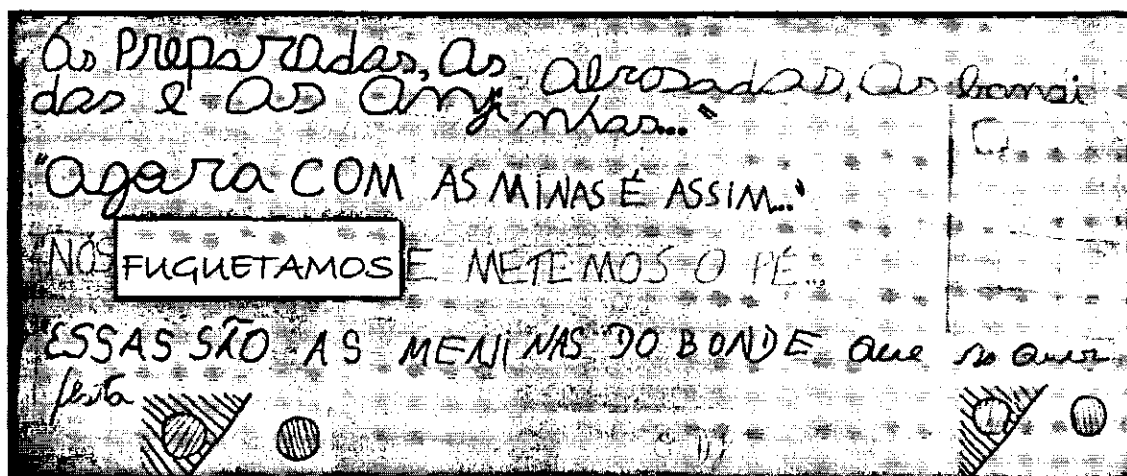 As Preparadas, As abrosadas, as bandi
das e as anjinhas..."
"agora COM AS MINAS É ASSIM..."
"NÓS FUGUETAMOS E METEMOS O PÉ...
"ESSAS SÃO AS MENINAS DO BONDE que só quer
festa